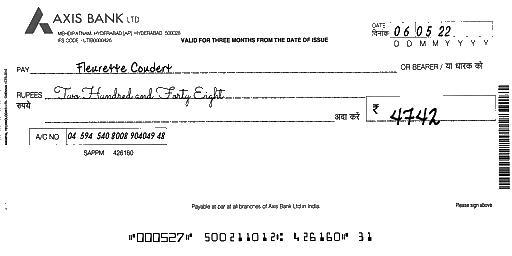 AXIS BANK LTD
MEHDIPATNAM, HYDERABAD (AP) HYDERABAD 500028
IFS CODE - UTIB0000426
VALID FOR THREE MONTHS FROM THE DATE OF ISSUE
DATE
दिनांक 06 05 22
D D M M Y Y Y Y
PAY Fleurette Coudert OR BEARER / या धारक को
RUPEES Two Hundred and Forty Eight
रुपये
अदा करें ₹ 4742
A/C NO 04 594 540 8008 904049 48
SAPPM 426160
Payable at par at all branches of Axis Bank Ltd in India.
Please sign above
⑈000527⑈ 500211012⑆ 426160⑈ 31